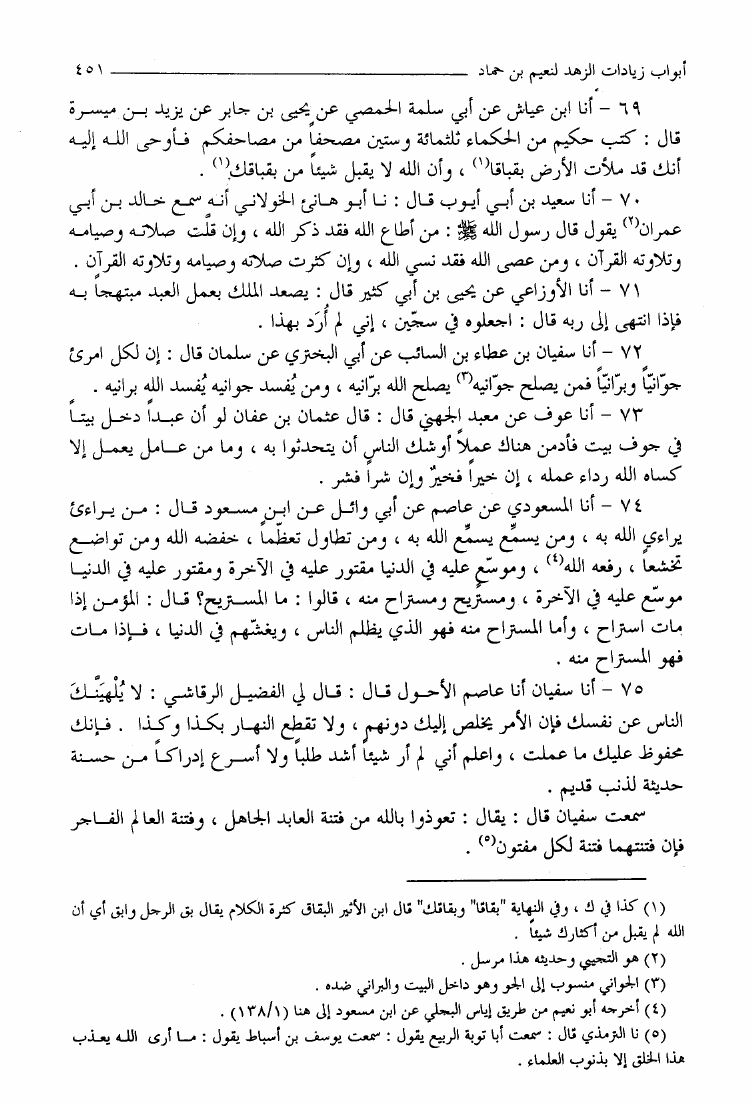 أبواب زيادات الزهد لنعيم بن حماد ٤٥١
٦٩ – أنا ابن عياش عن أبي سلمة الحمصي عن يحيى بن جابر عن يزيد بـن ميسـرة
قال : كتب حكيم من الحكماء ثلثمائة وستين مصحفاً من مصاحفكم فـأوحى اللـه إليـه
أنك قد ملأت الأرض بقباقا(١) ، وأن الله لا يقبل شيئاً من بقباقك(١) .
٧٠ – أنا سعيد بن أبـي أيـوب قـال : نـا أبـو هـانئ الخولانـي أنـه سمـع خـالد بـن أبـي
عمران(٢) يقول قال رسول الله ﷺ : من أطاع الله فقد ذكر الله ، وإن قلّت صلاتـه وصيامـه
وتلاوته القرآن ، ومن عصى الله فقد نسي الله ، وإن كثرت صلاته وصيامه وتلاوته القرآن .
٧١ – أنا الأوزاعي عن يحيى بن أبي كثير قال : يصعد الملك بعمل العبد مبتهجاً بـه
فإذا انتهى إلى ربه قال : اجعلوه في سجّين ، إني لم أُرَد بهذا .
٧٢ – أنا سفيان بن عطاء بن السائب عن أبي البختري عن سلمان قال : إن لكل امرئ
جوّانيّاً وبرّانيّاً فمن يصلح جوّانيه(٣) يصلح الله برّانيه ، ومن يُفسد جوانيه يُفسد الله برانيه .
٧٣ – أنا عوف عن معبد الجهني قال : قال عثمان بن عفان لو أن عبـداً دخـل بيتـاً
في جوف بيت فأدمن هناك عملاً أوشك الناس أن يتحدثوا به ، وما من عـامل يعمـل إلا
كساه الله رداء عمله ، إن خيراً فخيرٌ وإن شراً فشر .
٧٤ – أنا المسعودي عن عاصم عن أبي وائـل عـن ابـن مسـعود قـال : مـن يـراءئ
يراءي الله به ، ومن يسمِّع يسمِّع الله به ، ومن تطاول تعظّماً ، خفضه الله ومن تواضـع
تخشعاً ، رفعه الله(٤) ، وموسّع عليه في الدنيا مقتور عليه في الآخرة ومقتور عليه في الدنيـا
موسّع عليه في الآخرة ، ومستريح ومستراح منه ، قالوا : ما المستريح؟ قـال : المؤمـن إذا
مات استراح ، وأما المستراح منه فهو الذي يظلم الناس ، ويغشّهم في الدنيا ، فـإذا مـات
فهو المستراح منه .
٧٥ – أنا سفيان أنا عاصم الأحـول قـال : قـال لي الفضيـل الرقاشـي : لا يُلْهيَنَّـكَ
الناس عن نفسك فإن الأمر يخلص إليك دونهم ، ولا تقطع النهـار بكـذا وكـذا . فـإنك
محفوظ عليك ما عملت ، واعلم أني لم أر شيئاً أشد طلباً ولا أسـرع إدراكـاً مـن حسـنة
حديثة لذنب قديم .
سمعت سفيان قال : يقال : تعوذوا بالله من فتنة العابد الجاهل ، وفتنة العالم الفـاجر
فإن فتنتهما فتنة لكل مفتون(٥) .
(١) كذا في ك ، وفي النهاية "بقاقا" وبقاقك" قال ابن الأثير البقاق كثرة الكلام يقال بق الرجل وابق أي أن
الله لم يقبل من أكثارك شيئاً .
(٢) هو التجيبي وحديثه هذا مرسل .
(٣) الجواني منسوب إلى الجو وهو داخل البيت والبراني ضده .
(٤) أخرجه أبو نعيم من طريق إياس البجلي عن ابن مسعود إلى هنا (١٣٨/١) .
(٥) نا الترمذي قال : سمعت أبا توبة الربيع يقول : سمعت يوسف بن أسباط يقول : مـا أرى اللـه يعـذب
هذا الخلق إلا بذنوب العلماء .